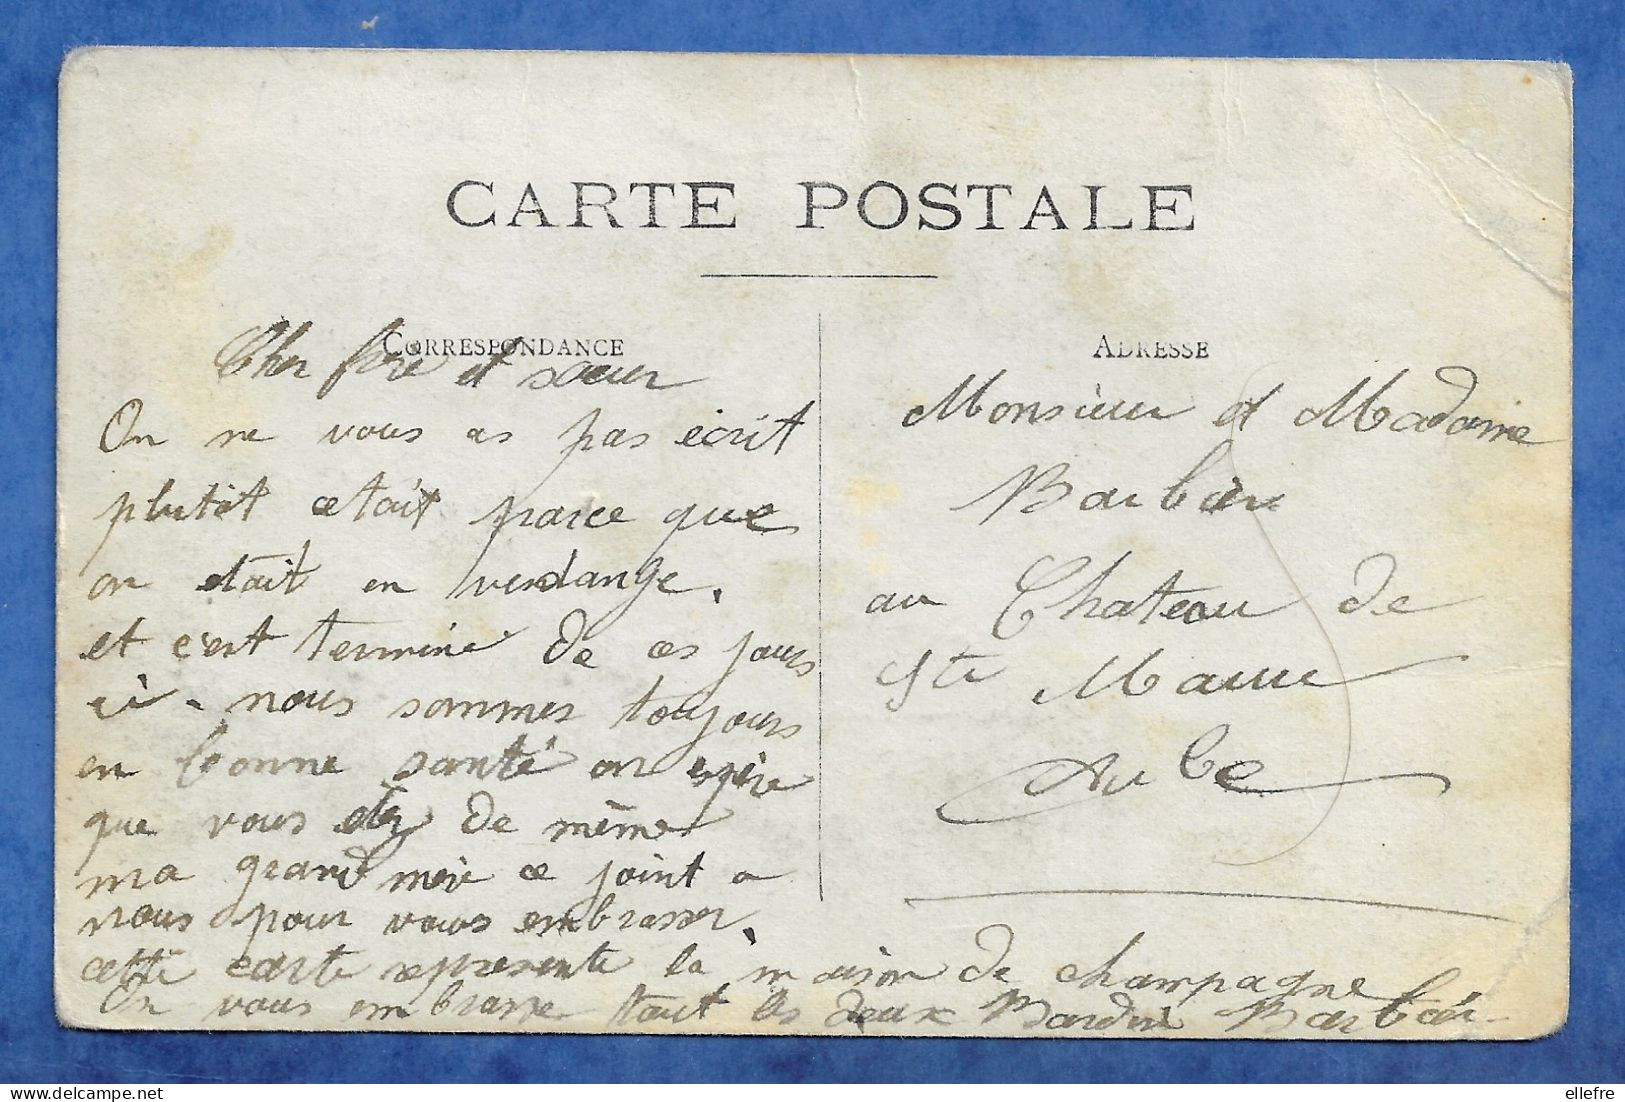 CARTE POSTALE
CORRESPONDANCE
Cher frere et soeur
On ne vous as pas écrit
plutôt cetait parce que
on etait en vendange.
et c'est terminé de ces jours
ici. nous sommes toujours
en bonne santé on espère
que vous etez de même
ma grand mère ce joint a
nous pour vous embrasser.
cette carte represente la maison de champagne
On vous embrasse tout les deux Barbier
ADRESSE
Monsieur et Madame
Barbier
au Chateau de
Ste Maure
Aube
ellefre